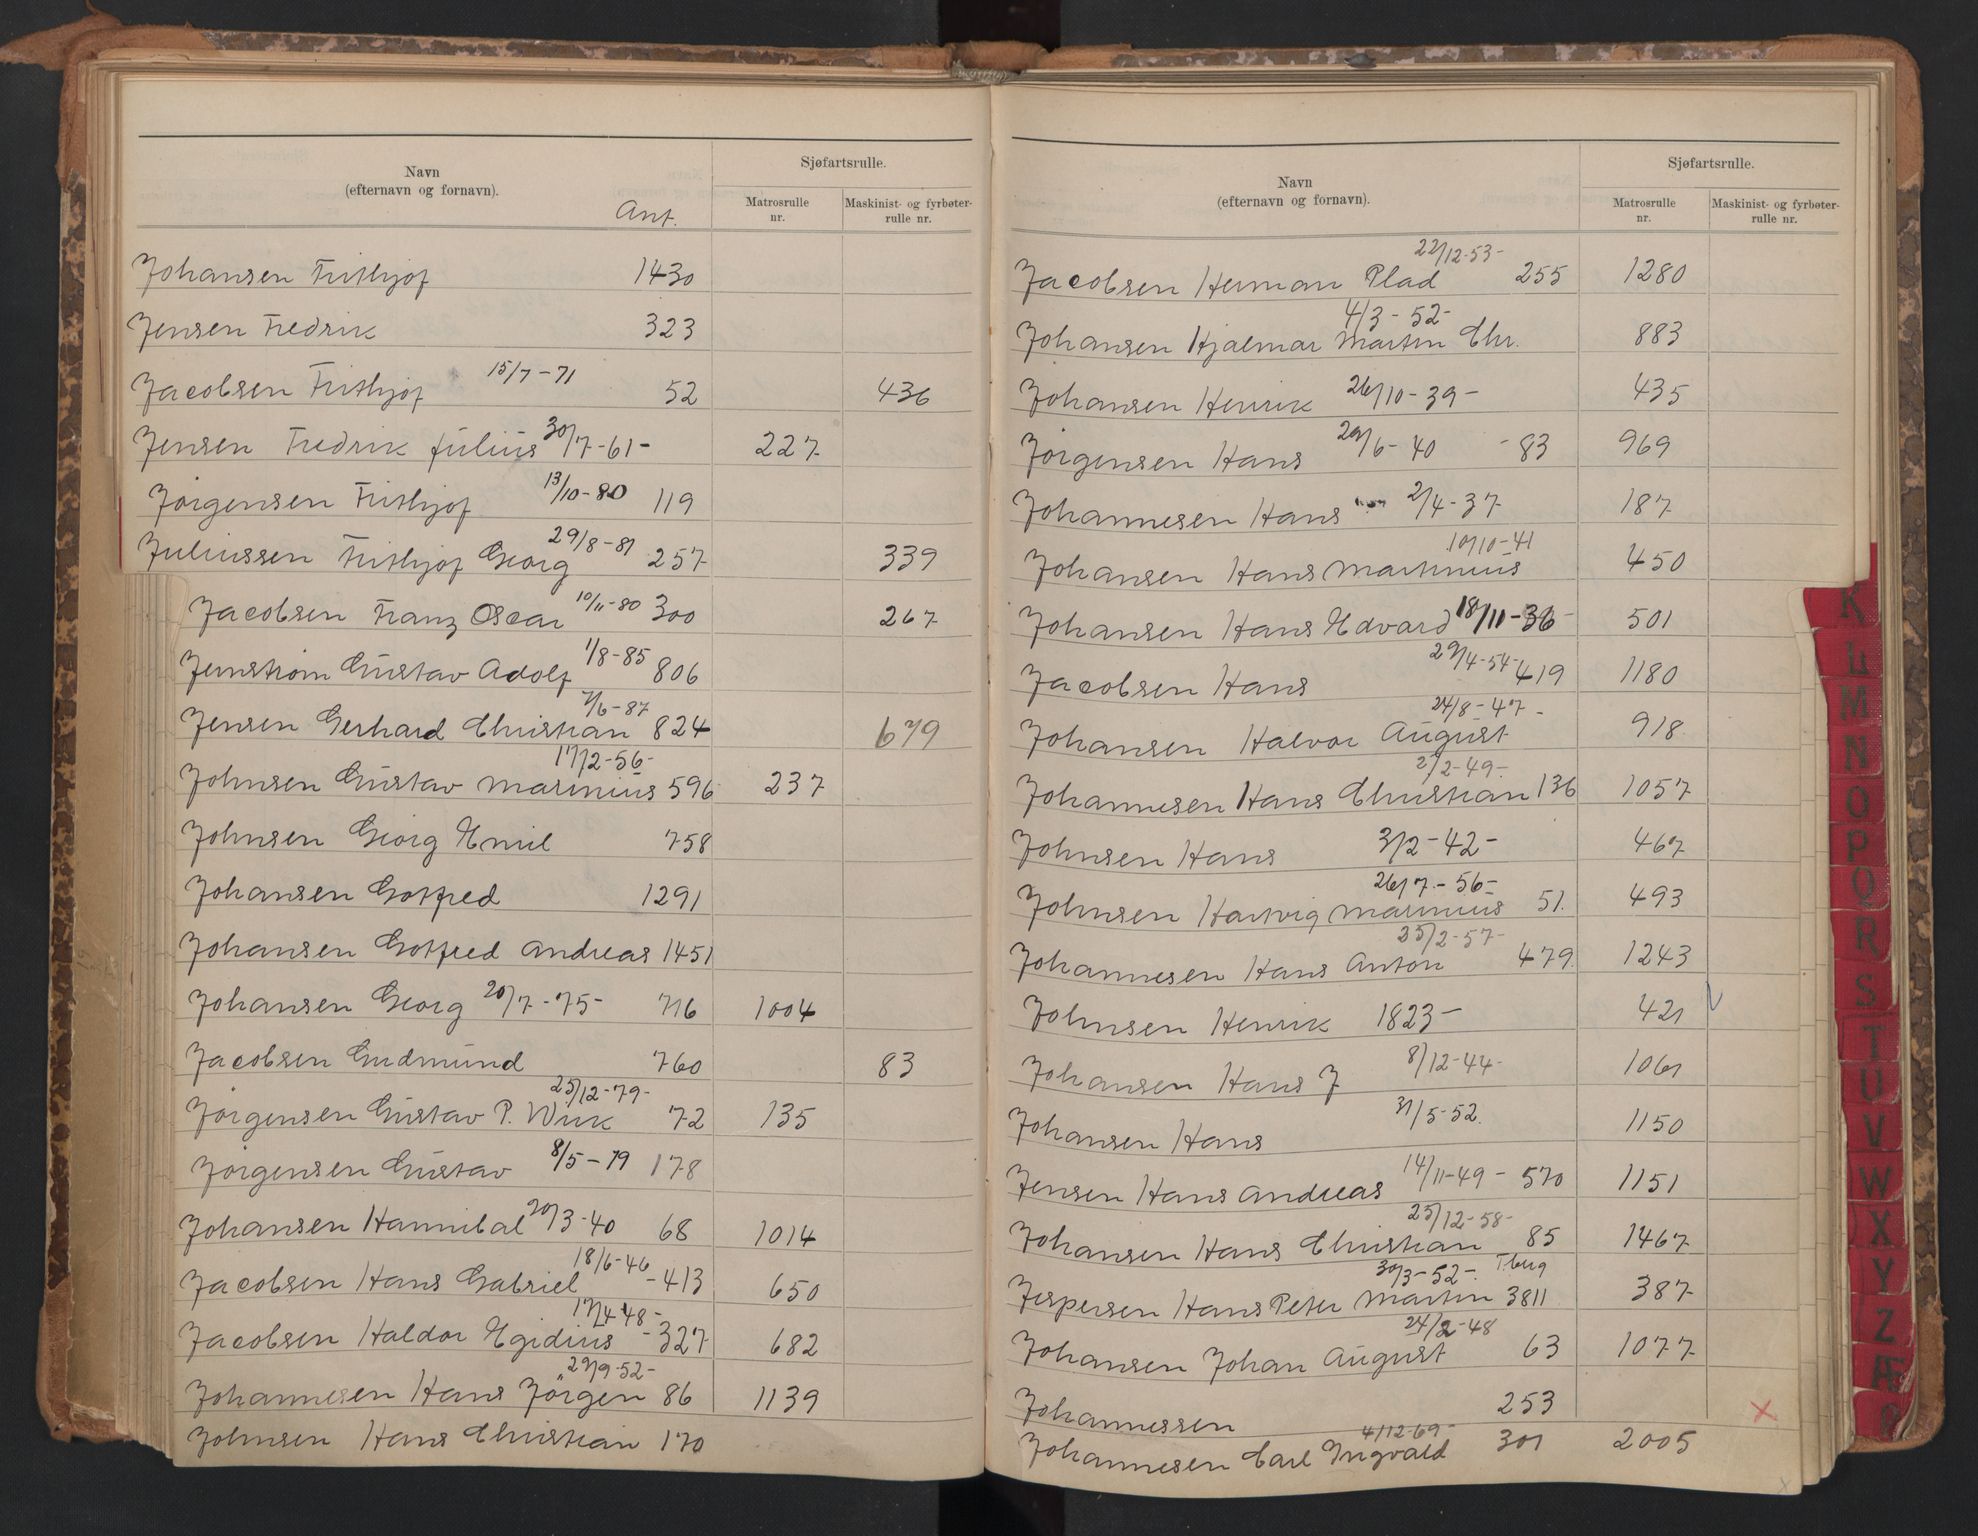 Navn
(efternavn og fornavn).
Ant.
Sjøfartsrulle.
Matrosrulle
nr.
Maskinist- og fyrbøter-
rulle nr.
Johansen Frithjof 1430
Jensen Fredrik 323
Jacobsen Frithjof 15/7-71 52 436
Jensen Fredrik Julius 30/7-61- 227
Jørgensen Frithjof 13/10-80 119
Juliussen Frithjof Georg 29/8-81 257 339
Jacobsen Franz Oscar 10/11-80 300 267
Jernstrøm Gustav Adolf 1/8-85 806
Jensen Gerhard Christian 7/6-87 824 679
Johnsen Gustav Marinius 17/2-56- 596 237
Johnsen Georg Emil 758
Johansen Gotfred 1291
Johansen Gotfred Andreas 1451
Johansen Georg 20/7-75- 716 1004
Jacobsen Gudmund 760 83
Jørgensen Gustav P. Wiik 25/12-79- 72 135
Jørgensen Gustav 8/5-79 178
Johansen Hannibal 20/3-40 68 1014
Jacobsen Hans Gabriel 18/6-46 -413 650
Jacobsen Haldor Egidius 17/4 48- -327 682
Johannesen Hans Jörgen 29/9-52- 86 1139
Johnsen Hans Christian 170
Navn
(efternavn og fornavn).
Sjøfartsrulle.
Matrosrulle
nr.
Maskinist- og fyrbøter-
rulle nr.
Jacobsen Herman Plad 22/12-53- 255 1280
Johansen Hjalmar Martin Chr. 4/3-52- 883
Johansen Henrik 26/10-39- 435
Jørgensen Hans 29/6-40 -83 969
Johannesen Hans 2/4-37 187
Johansen Hans Martinius 10/10-41 450
Johansen Hans Edvard 18/11-36- 501
Jacobsen Hans 29/4-54- 419 1180
Johansen Halvor August 24/8-47- 918
Johannesen Hans Christian 2/2-49- 136 1057
Johnsen Hans 3/2-42- 467
Johnsen Hartvig Marinius 26/7-56- 51. 493
Johannesen Hans Anton 25/2-57- 479. 1243
Johnsen Henrik 1823- 421
Johansen Hans J 8/12-44- 1061
Johansen Hans 31/5-52. 1150
Jensen Hans Andreas 14/11-49- 570 1151
Johansen Hans Christian 25/12-58- 85 1467
Jespersen Hans Peter Martin 30/3-52-. T.berg 3811 387
Johansen Johan August 24/2-48 63 1077
Johannessen 253
Johannesen Carl Ingvald 4/12-69- 301 2005
K
L
M
N
O
P
Q
R
S
T
U
V
W
X
Y
Z
Æ
Ø